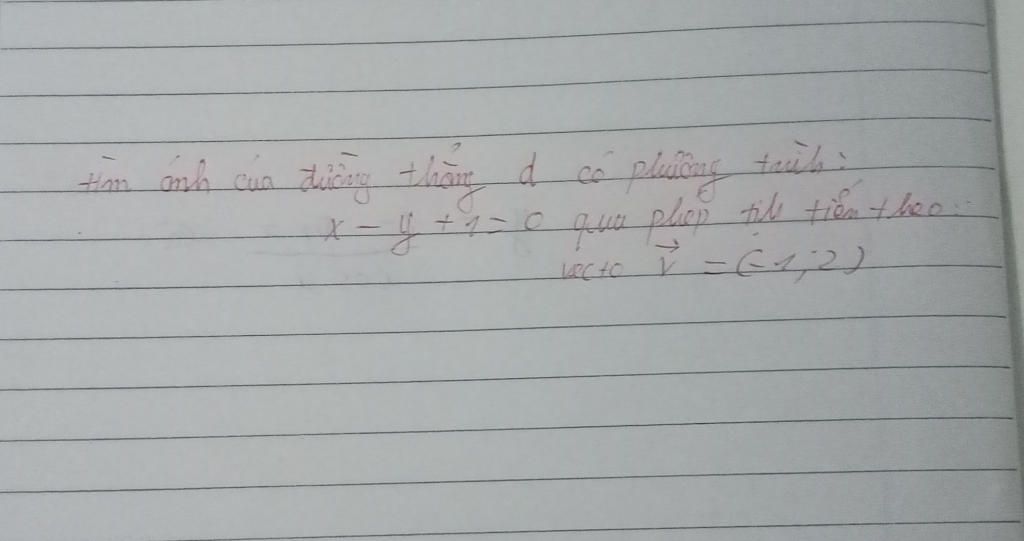 tìm ảnh của đường thẳng d có phương trình:
x - y + 1 = 0 qua phép tịnh tiến theo
vecto v⃗ = (-1; 2)